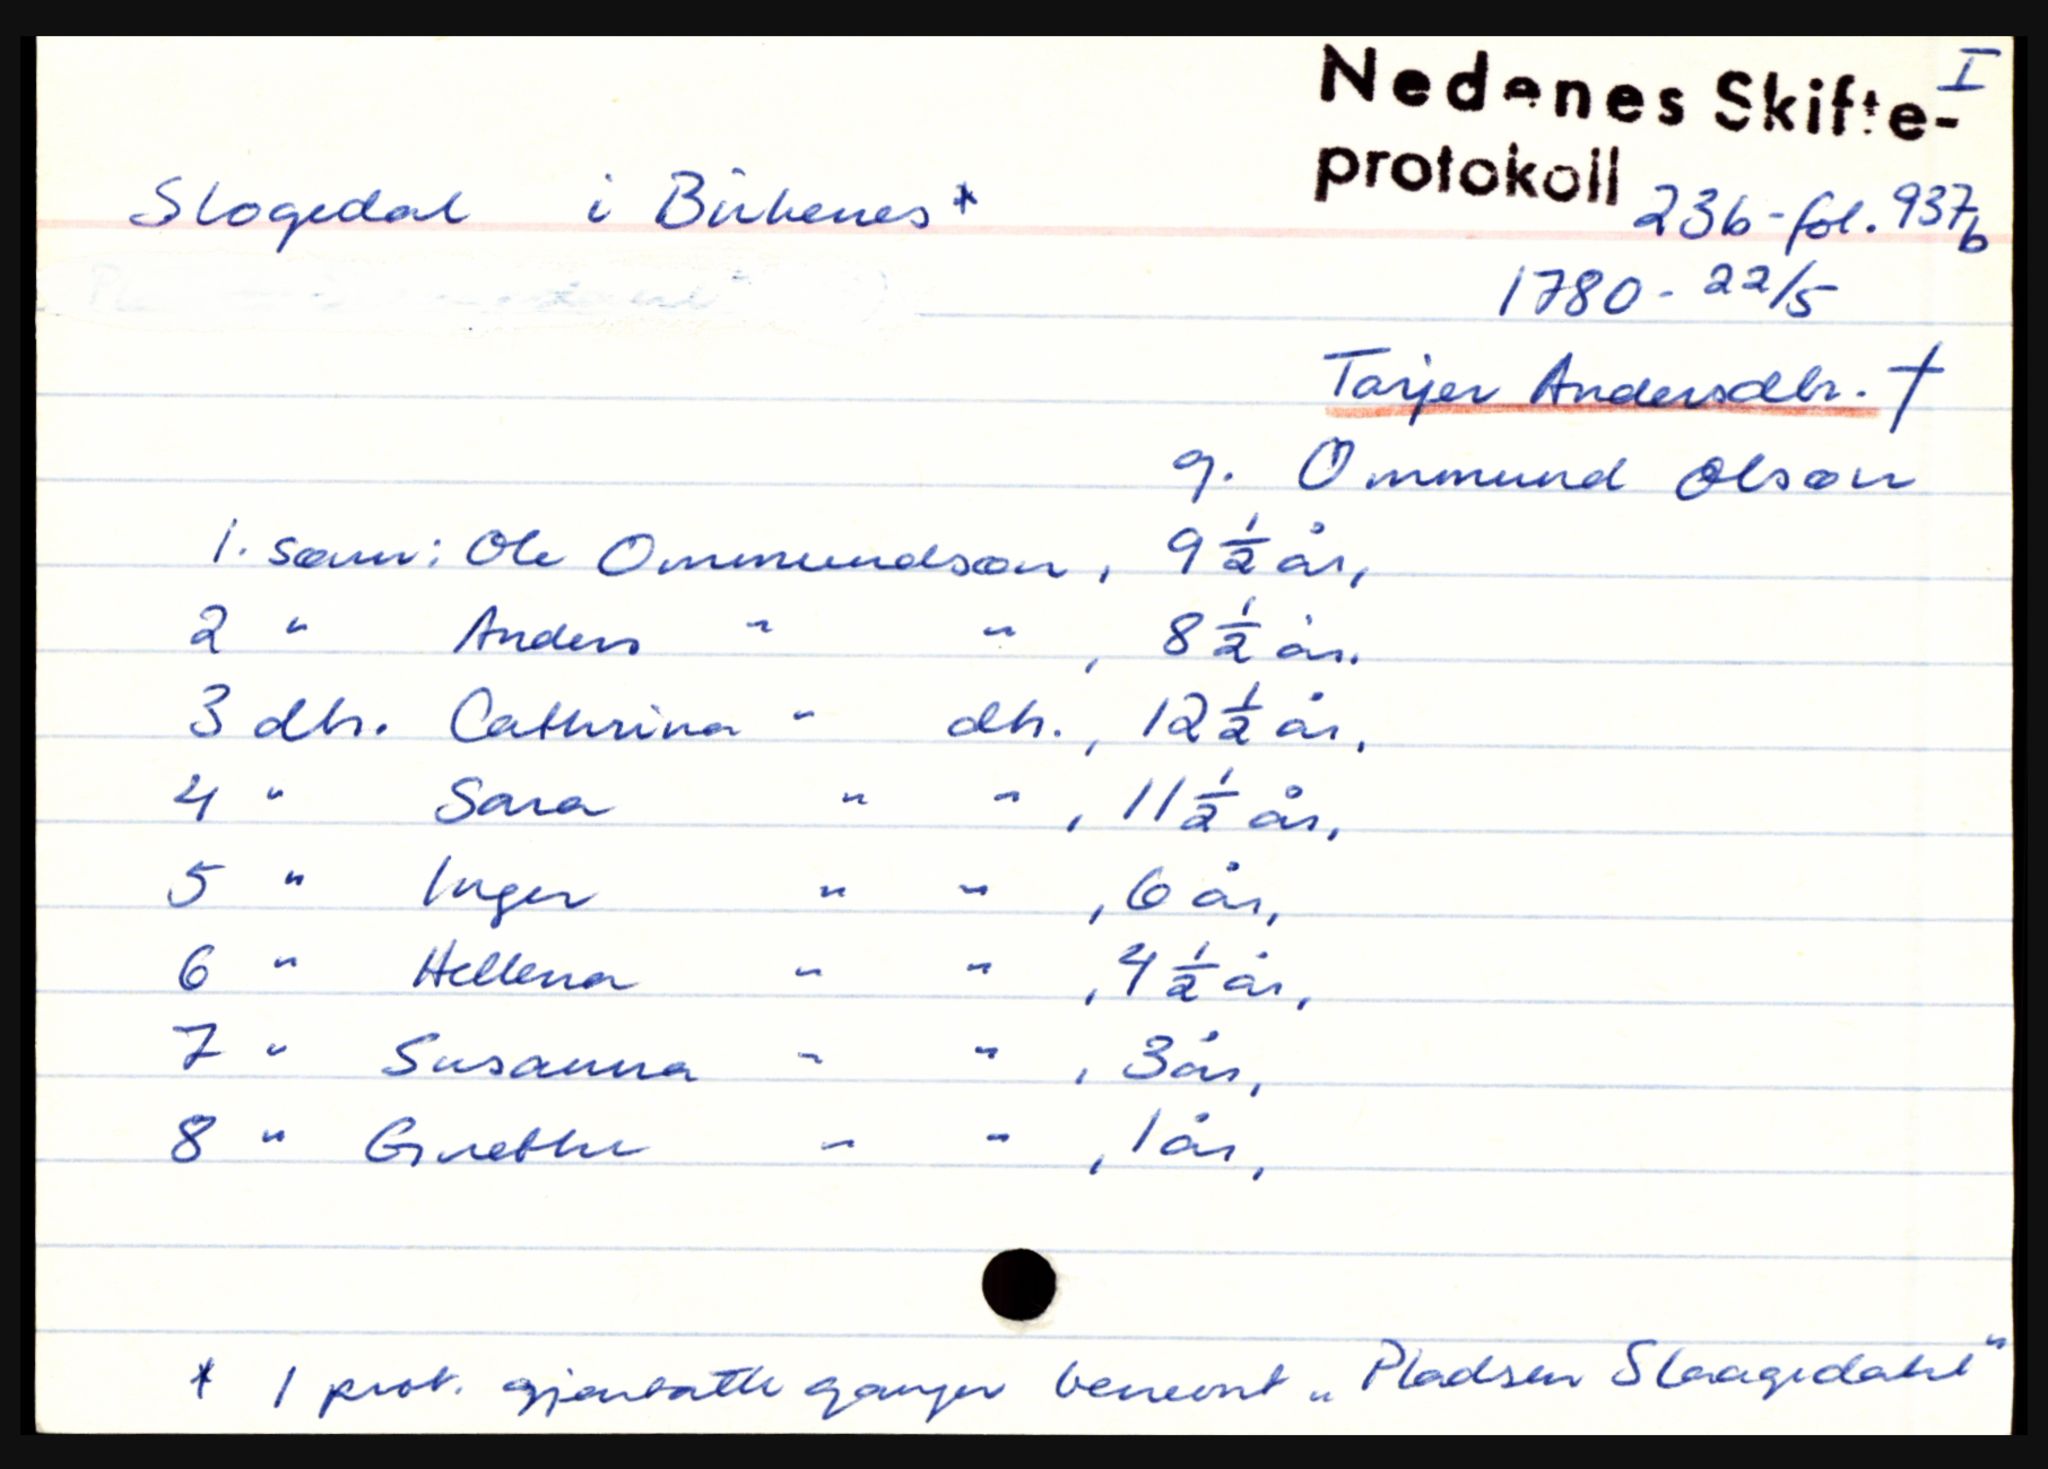 I
Nedenes Skifte-
protokoll
Slogedal i Birkenes*
23b-fol. 937b
1780 - 22/5
Tarjer Andersdtr. †
g. Ommund Olsøn
1. sønn: Ole Ommundsøn, 9 1/2 år,
2 " Anders " ", 8 1/2 år.
3 dtr. Cathrina " dtr., 12 1/2 år,
4 " Sara " ", 11 1/2 år,
5 " Inger " ", 6 år,
6 " Hellena " ", 4 1/2 år,
7 " Susanna " ", 3 år,
8 " Grethe " ", 1 år,
* I prot. gjentatte ganger benevnt „Pladsen Slaagedahl"